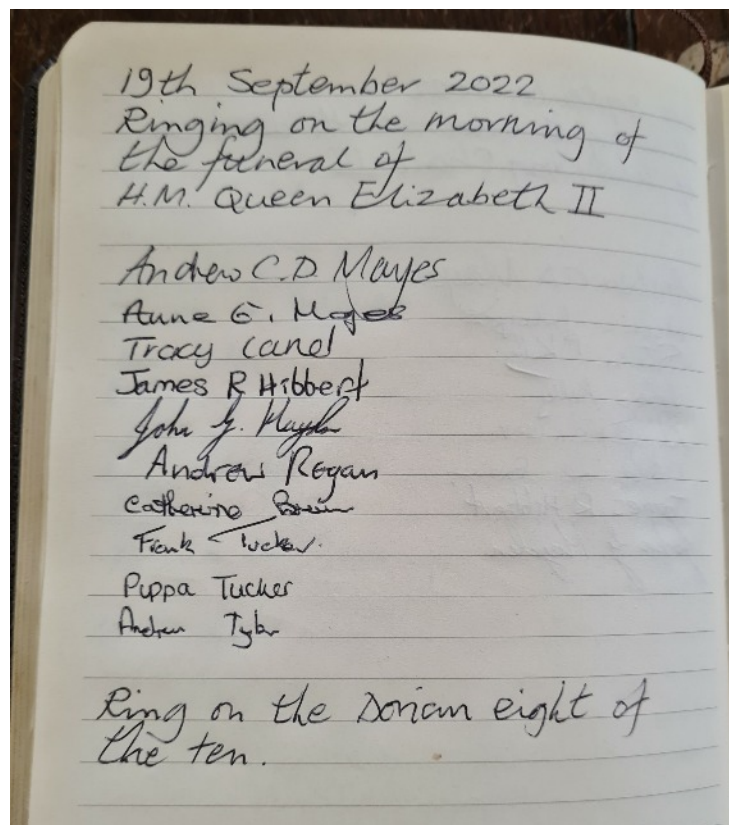 19th September 2022
Ringing on the morning of
the funeral of
H.M. Queen Elizabeth II
Andrew C.D. Mayes
Anne E. Mayes
Tracy
James R Hibbert
John G.
Andrew Regan
Catherine
Frank Tucker.
Pippa Tucker
Andrew Tyler
Ring on the Dorian eight of
the ten.